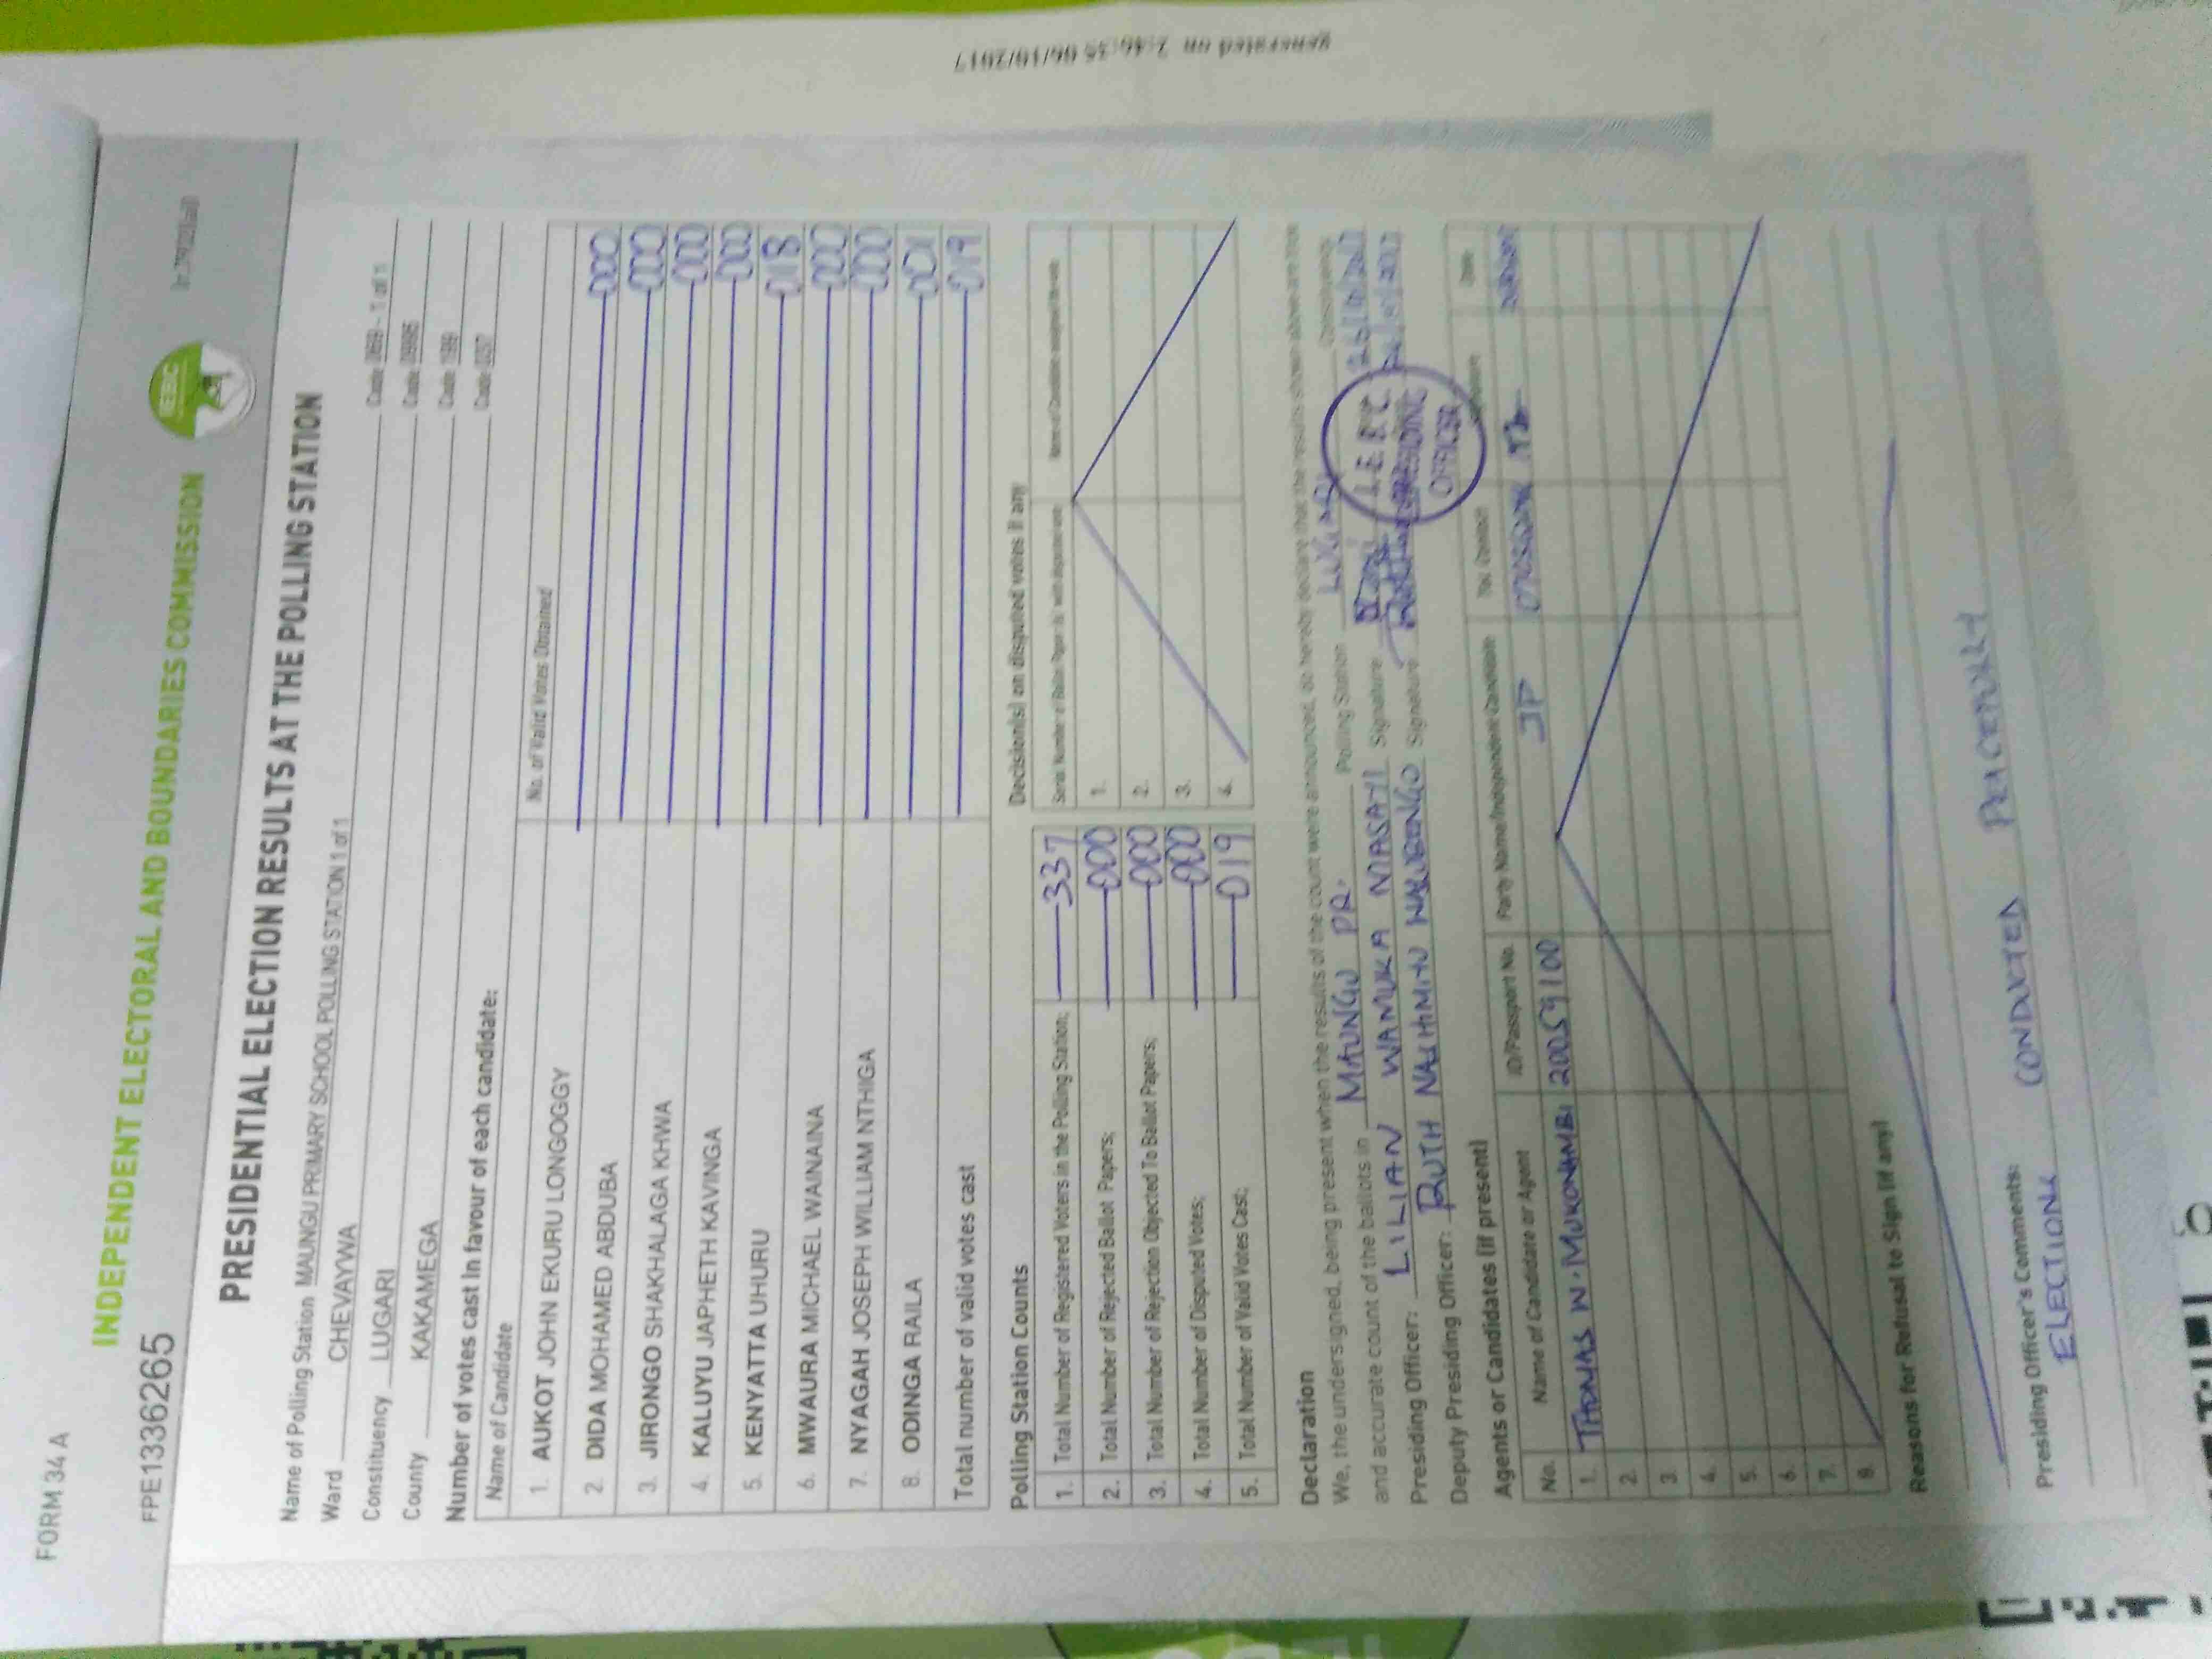 FORM 34 A
INDEPENDENT ELECTORAL AND BOUNDARIES COMMISSION
IEBC
FPE1336265
PRESIDENTIAL ELECTION RESULTS AT THE POLLING STATION
Name of Polling Station MAUNGU PRIMARY SCHOOL POLLING STATION 1 of 1
Ward CHEVAYWA
Constituency LUGARI
County KAKAMEGA
Number of votes cast in favour of each candidate:
Name of Candidate No. of Valid Votes Obtained
1. AUKOT JOHN EKURU LONGOGGY 000
2. DIDA MOHAMED ABDUBA 000
3. JIRONGO SHAKHALAGA KHWA 000
4. KALUYU JAPHETH KAVINGA 000
5. KENYATTA UHURU 018
6. MWAURA MICHAEL WAINAINA 000
7. NYAGAH JOSEPH WILLIAM NTHIGA 000
8. ODINGA RAILA 001
Total number of valid votes cast 019
Polling Station Counts
1. Total Number of Registered Voters in the Polling Station; 337
2. Total Number of Rejected Ballot Papers; 000
3. Total Number of Rejection Objected To Ballot Papers; 000
4. Total Number of Disputed Votes; 000
5. Total Number of Valid Votes Cast; 019
Decision(s) on disputed votes if any
1.
2.
3.
4.
Declaration
We, the undersigned, being present when the results of the count were announced, do hereby declare that the results shown above are true
and accurate count of the ballots in MAUNGU PR. Polling Station LUGARI Constituency
Presiding Officer: LILIAN WAMUKA Signature 26/10/2017
Deputy Presiding Officer: RUTH Signature
PRESIDING
OFFICER
Agents or Candidates (if present)
No. Name of Candidate or Agent ID/Passport No. Party Name/Independent Candidate Tel. Contact Signature Date
1. THOMAS W. MUKONAMBI 20059100 JP
2.
3.
4.
5.
6.
7.
8.
Reasons for Refusal to Sign (if any)
Presiding Officer's Comments:
ELECTIONS CONDUCTED
generated on 2:46:35 06/10/2017